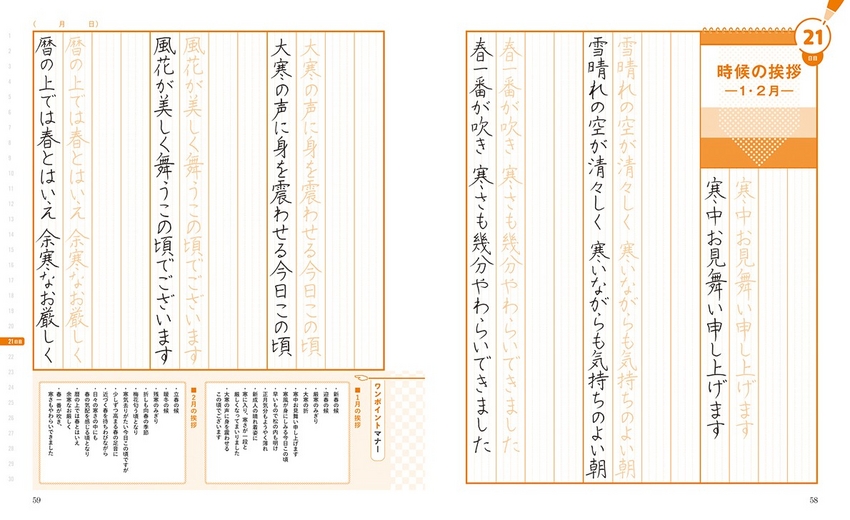 21
日目
時候の挨拶
―1・2月―
寒中お見舞い申し上げます
寒中お見舞い申し上げます
雪晴れの空が清々しく 寒いながらも気持ちのよい朝
雪晴れの空が清々しく 寒いながらも気持ちのよい朝
春一番が吹き 寒さも幾分やわらいできました
春一番が吹き 寒さも幾分やわらいできました
58
( 月 日)
大寒の声に身を震わせる今日この頃
大寒の声に身を震わせる今日この頃
風花が美しく舞うこの頃でございます
風花が美しく舞うこの頃でございます
暦の上では春とはいえ 余寒なお厳しく
暦の上では春とはいえ 余寒なお厳しく
21日目
ワンポイントマナー
■1月の挨拶
・新春の候
・迎春の候
・厳寒のみぎり
・大寒の折
・寒中お見舞い申し上げます
・寒風が身にしみる今日この頃
・早いもので松の内も明け
・正月気分もようやく薄れ
・新成人の晴れ着姿に
・寒に入り、寒さが一段と
厳しくなってまいりました
・大寒の声に身を震わせる
この頃でございます
■2月の挨拶
・立春の候
・暖冬の候
・残寒のみぎり
・折しも向春の季節
・梅花匂う頃となり
・寒気ゆりがたい今日この頃ですが
・少しずつ高まる春の足音に
・近づく春を待ちわびながら
・日々の寒さの中にも
春の気配を感じる頃となり
・暦の上では春とはいえ
余寒なお厳しく
・春一番が吹き、
寒さもやわらいできました
59